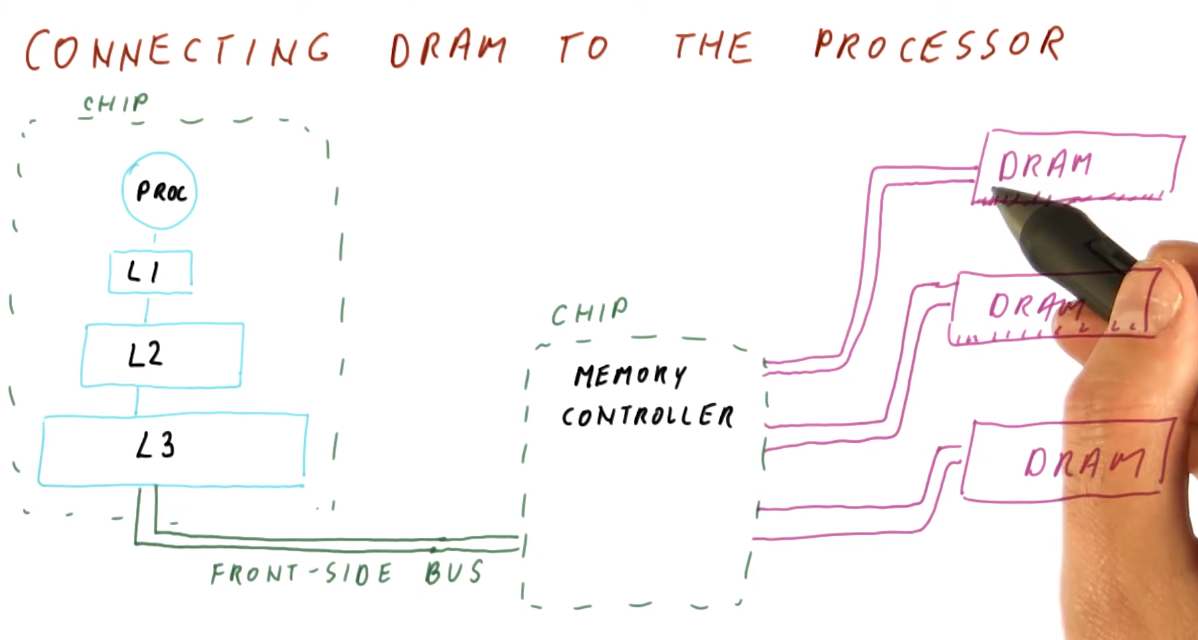 CONNECTING DRAM TO THE PROCESSOR
CHIP
PROC
L1
L2
L3
FRONT-SIDE BUS
CHIP
MEMORY
CONTROLLER
DRAM
DRAM
DRAM